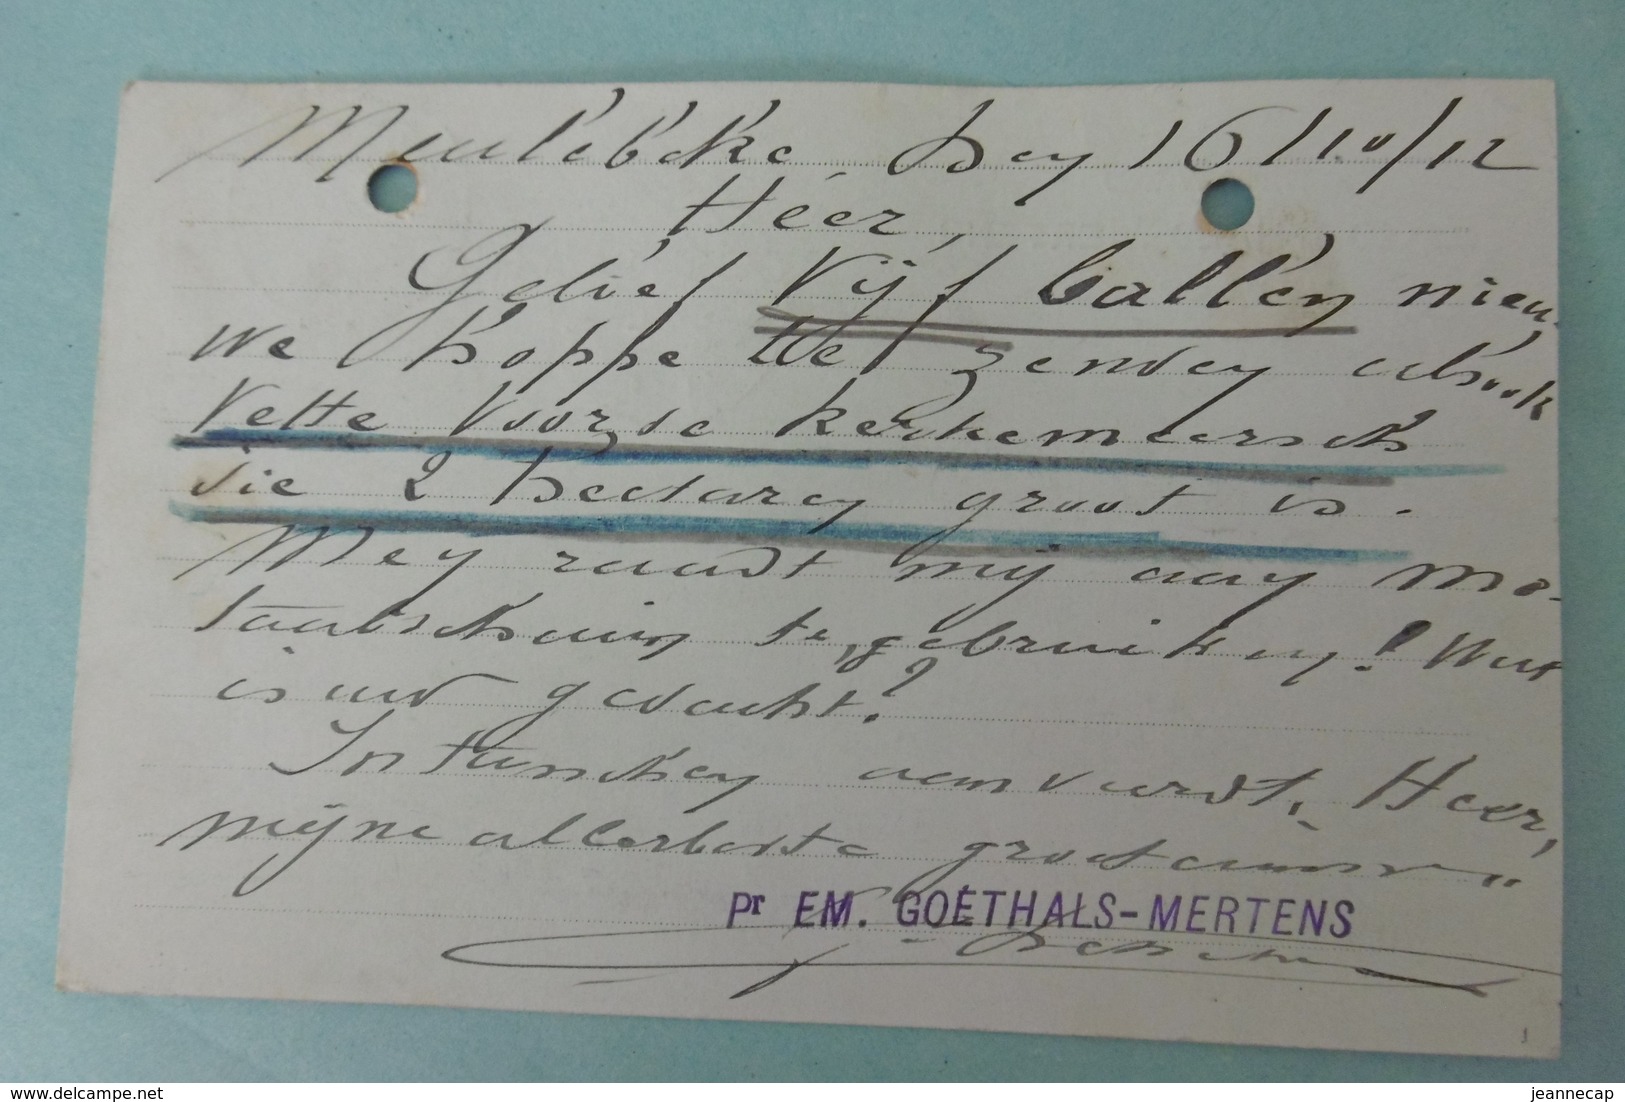 Meulebeke, den 16/10/12
Heer,
Gelief Vijf ballen nieu-
we hoppe te zenden alsook
vette voor de kerkemeersch
die 2 hectaren groot is.
Men raadt mij aan me-
taalschuim te gebruiken! Wat
is uw gedacht?
Intusschen aanvaardt, Heer,
mijne allerbeste groetenissen
Pr EM. GOETHALS-MERTENS
delcampe.net
jeannecap